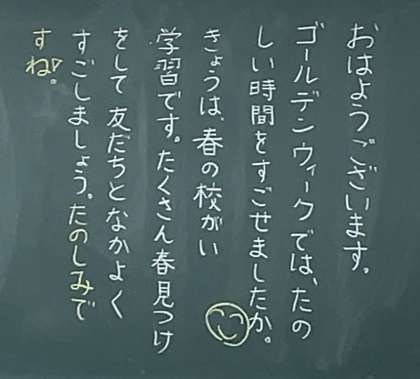 おはようございます。
ゴールデンウィークでは、たの
しい時間をすごせましたか。
きょうは、春の校がい
学習です。たくさん春見つけ
をして友だちとなかよく
すごしましょう。たのしみで
すね!